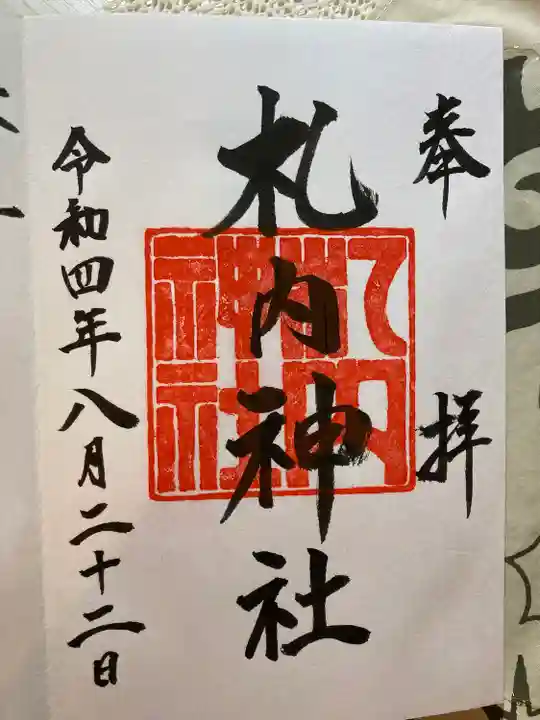 奉拝
札内神社
札内神社
令和四年八月二十二日